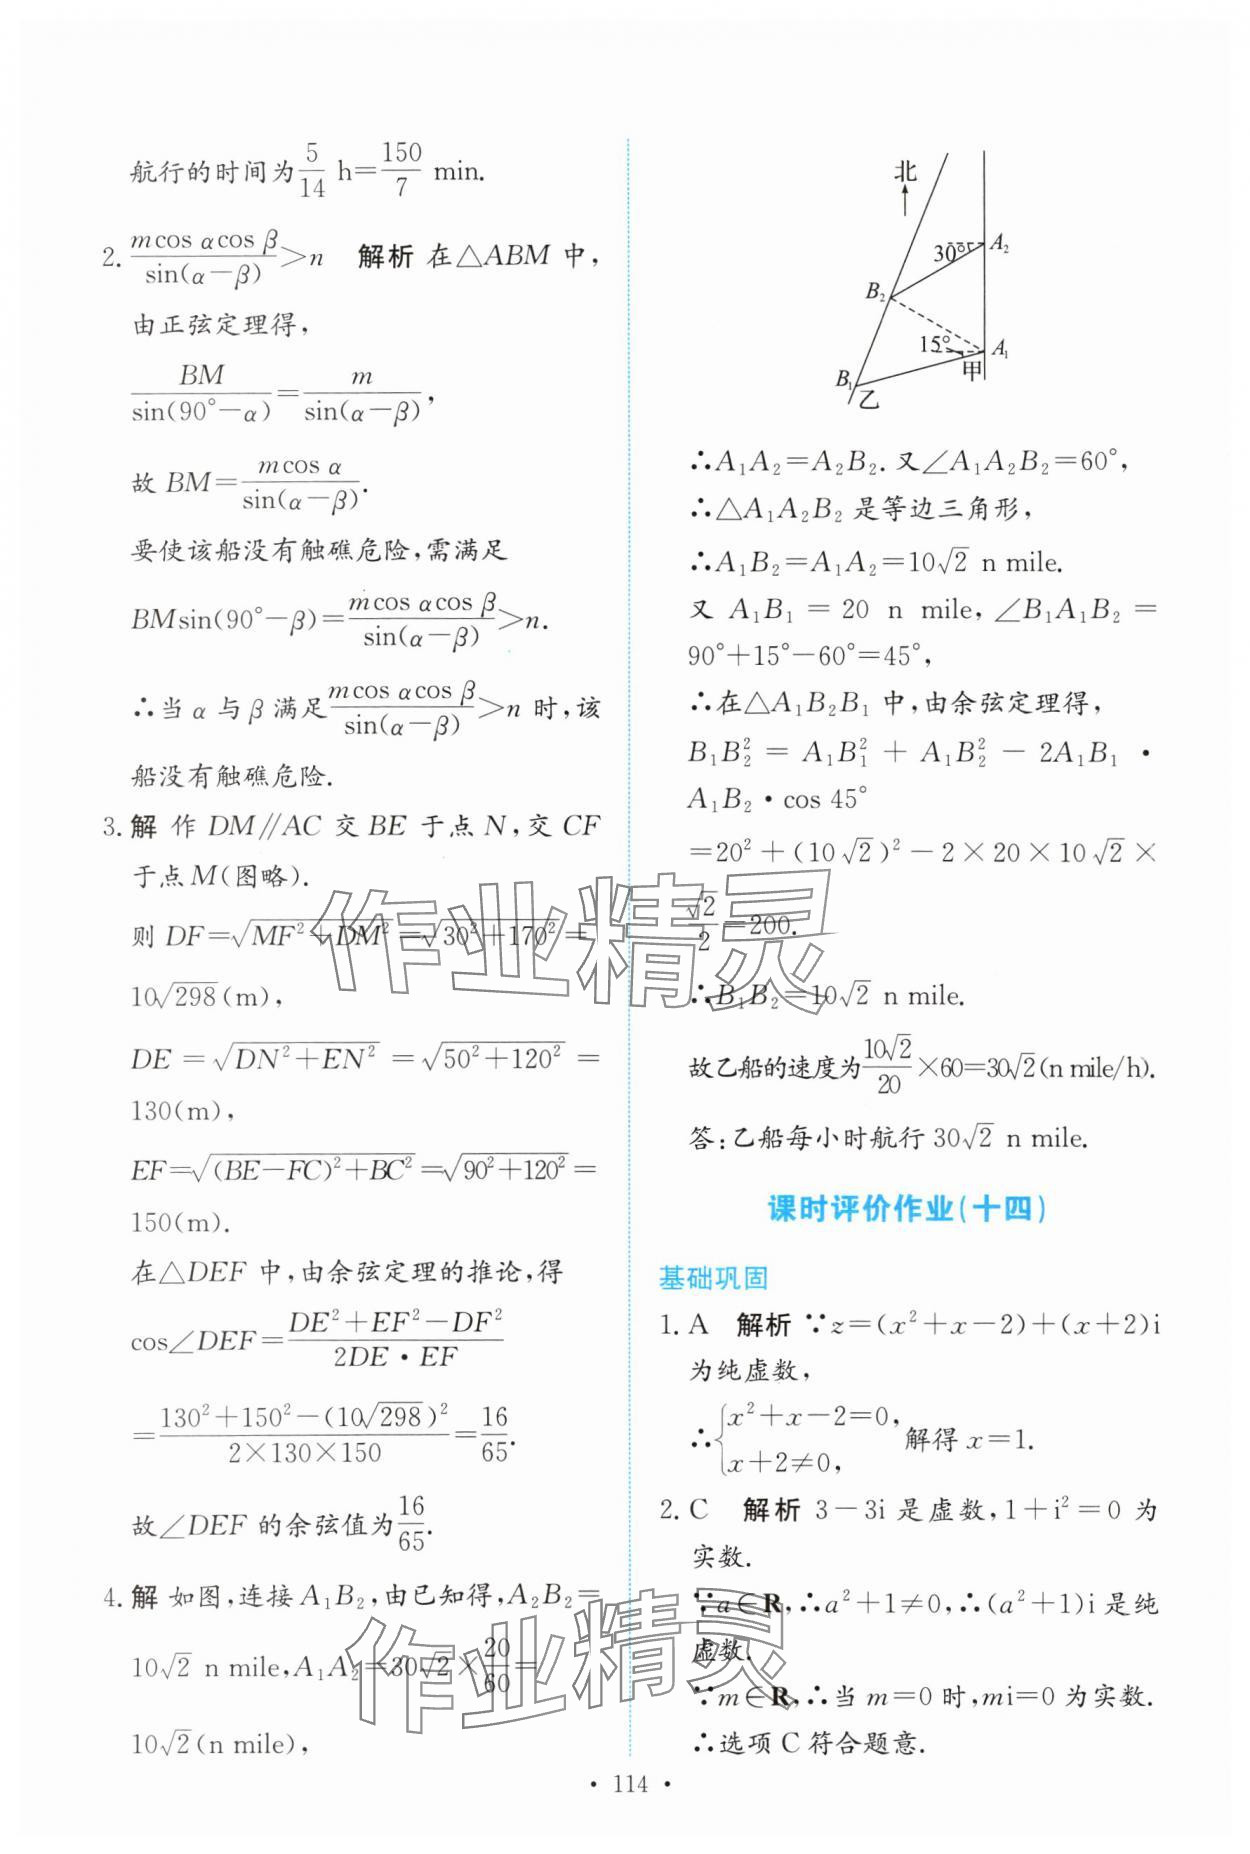 航行的时间为5/14 h=150/7 min.
2. mcos αcos β/sin(α-β)>n 解析 在△ABM 中,
由正弦定理得,
BM/sin(90°-α)=m/sin(α-β),
故 BM=mcos α/sin(α-β).
要使该船没有触礁危险,需满足
BMsin(90°-β)=mcos αcos β/sin(α-β)>n.
∴当 α 与 β 满足mcos αcos β/sin(α-β)>n 时,该
船没有触礁危险.
3. 解 作 DM∥AC 交 BE 于点 N,交 CF
于点 M(图略).
则 DF=√(MF²+DM²)=√(30²+170²)=
10√298(m),
DE=√(DN²+EN²)=√(50²+120²)=
130(m),
EF=√((BE-FC)²+BC²)=√(90²+120²)=
150(m).
在△DEF 中,由余弦定理的推论,得
cos∠DEF=(DE²+EF²-DF²)/(2DE·EF)
=(130²+150²-(10√298)²)/(2×130×150)=16/65.
故∠DEF 的余弦值为16/65.
4. 解 如图,连接 A₁B₂,由已知得,A₂B₂=
10√2 n mile,A₁A₂=30√2×20/60=
10√2(n mile),
北
30°
A₂
B₂
15°
A₁
甲
B₁
乙
∴A₁A₂=A₂B₂.又∠A₁A₂B₂=60°,
∴△A₁A₂B₂ 是等边三角形,
∴A₁B₂=A₁A₂=10√2 n mile.
又 A₁B₁=20 n mile,∠B₁A₁B₂=
90°+15°-60°=45°,
∴在△A₁B₂B₁ 中,由余弦定理得,
B₁B₂²=A₁B₁²+A₁B₂²-2A₁B₁·
A₁B₂·cos 45°
=20²+(10√2)²-2×20×10√2×
√2/2=200.
∴B₁B₂=10√2 n mile.
故乙船的速度为10√2/20×60=30√2(n mile/h).
答:乙船每小时航行 30√2 n mile.
课时评价作业(十四)
基础巩固
1. A 解析 ∵z=(x²+x-2)+(x+2)i
为纯虚数,
∴{x²+x-2=0, x+2≠0, 解得 x=1.
2. C 解析 3-3i 是虚数,1+i²=0 为
实数.
∵a∈R,∴a²+1≠0,∴(a²+1)i 是纯
虚数.
∵m∈R,∴当 m=0 时,mi=0 为实数.
∴选项 C 符合题意.
·114·
作业精灵
作业精灵